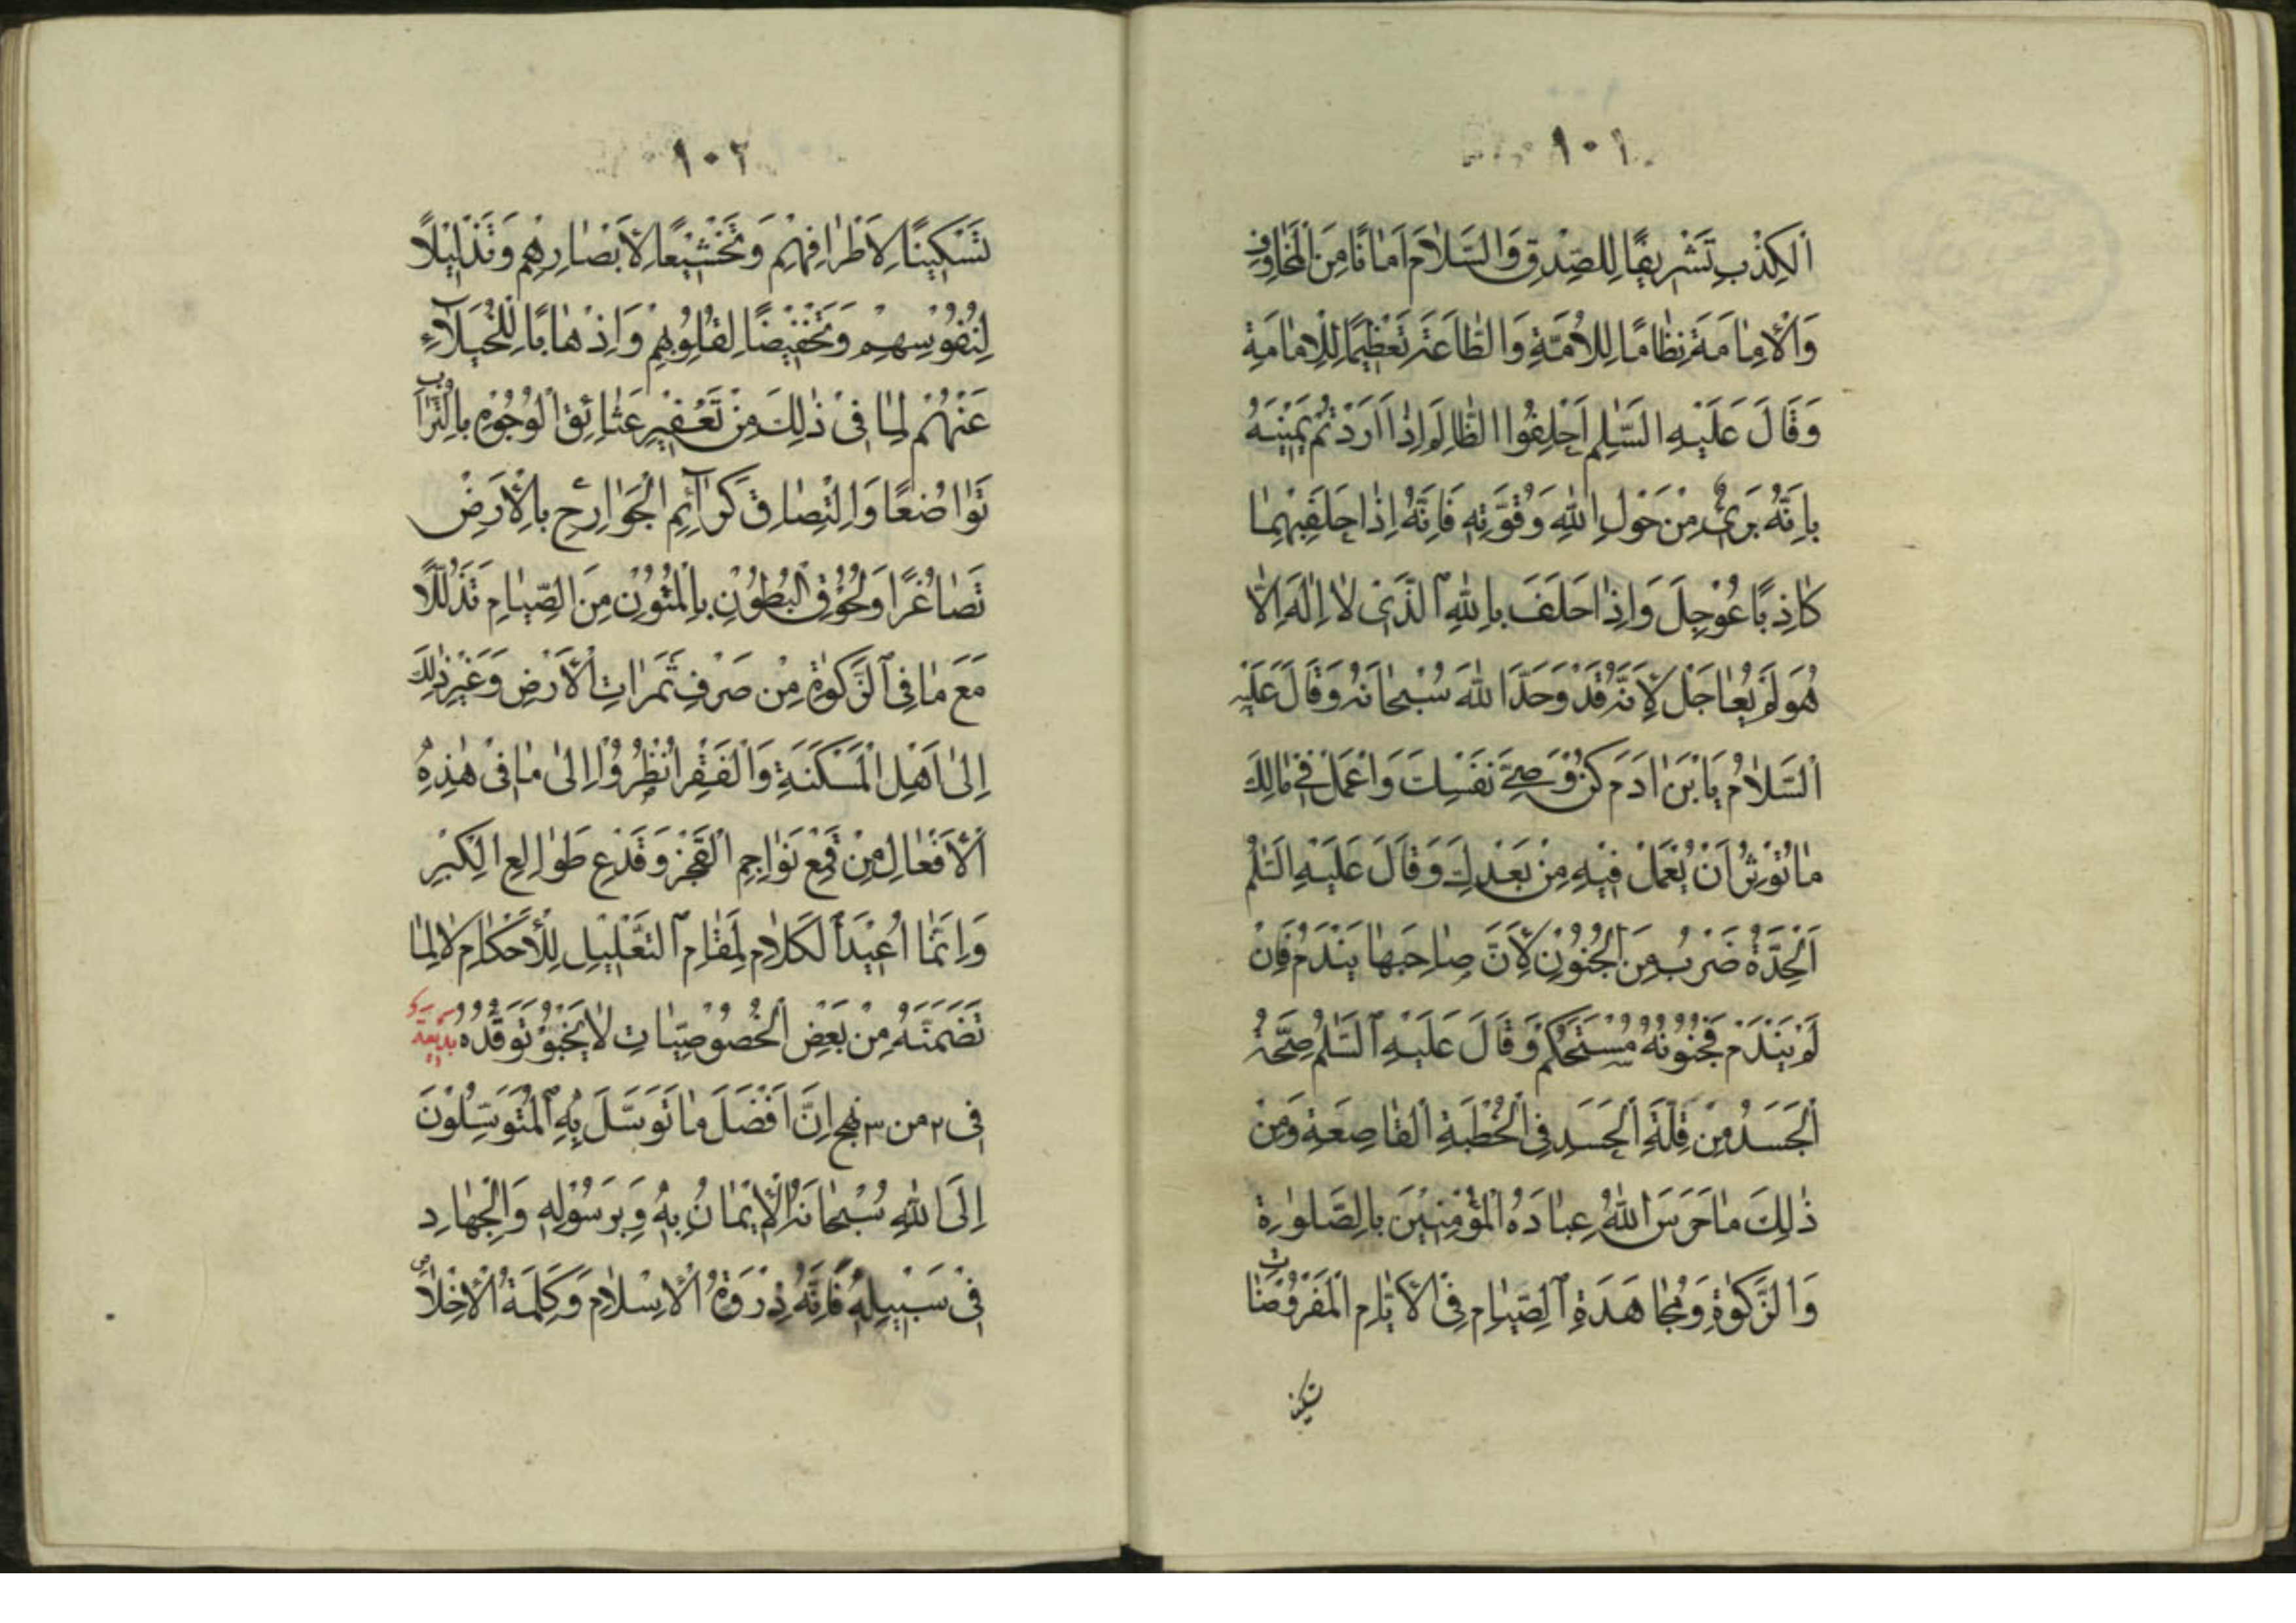 ١٠١
اَلْكِذْبِ تَشْرِيفًا لِلصِّدْقِ وَالسَّلَامَ اَمَانًا مِنَ الْمَخَاوِفِ
وَالْاِمَامَةَ نِظَامًا لِلْاُمَّةِ وَالطَّاعَةَ تَعْظِيمًا لِلْاِمَامَةِ
وَقَالَ عَلَيْهِ السَّلٰم اَحْلِفُوا الظَّالِمَ اِذَا اَرَدْتُمْ يَمِينَهُ
بِاَنَّهُ بَرِيٌ مِنْ حَوْلِ اللهِ وَقُوَّتِهِ فَاِنَّهُ اِذَا حَلَفَ بِهِمَا
كَاذِبًا عُوْجِلَ وَاِذَا حَلَفَ بِاللهِ الَّذِي لَا اِلٰهَ اِلَّا
هُوَ لَمْ يُعَاجَلْ لِاَنَّهُ قَدْ وَحَّدَ اللهَ سُبْحَانَهُ وَقَالَ عَلَيْهِ
اَلسَّلَامُ يَا بْنَ اٰدَمَ كُنْ وَصِيَّ نَفْسِكَ وَاعْمَلْ فِي مَالِكَ
مَا تُؤْثِرُ اَنْ يُعْمَلَ فِيْهِ مِنْ بَعْدِكَ وَقَالَ عَلَيْهِ السَّلٰمُ
اَلْحِدَّةُ ضَرْبٌ مِنَ الْجُنُوْنِ لِاَنَّ صَاحِبَهَا يَنْدَمُ فَاِنْ
لَمْ يَنْدَمْ فَجُنُوْنُهُ مُسْتَحْكَمٌ وَقَالَ عَلَيْهِ السَّلٰمُ صِحَّةُ
اَلْجَسَدِ مِنْ قِلَّةِ الْحَسَدِ فِي الْخُطْبَةِ الْقَاصِعَةِ وَمِنْ
ذٰلِكَ مَا حَرَسَ اللهُ عِبَادَهُ الْمُؤْمِنِيْنَ بِالصَّلوٰةِ
وَالزَّكوٰةِ وَمُجَاهَدَةِ الصِّيَامِ فِي الْاَيَّامِ الْمَفْرُوْضَاتِ
تسكينا
١٠٢
تَسْكِيْنًا لِاَطْرَافِهِمْ وَتَخْشِيْعًا لِاَبْصَارِهِمْ وَتَذْلِيْلًا
لِنُفُوْسِهِمْ وَتَخْفِيْضًا لِقُلُوْبِهِمْ وَاِذْهَابًا لِلْخُيَلَاءِ
عَنْهُمْ لِمَا فِيْ ذٰلِكَ مِنْ تَعْفِيْرِ عَتَائِقِ الْوُجُوْهِ بِالتُّرَابِ
تَوَاضُعًا وَالْتِصَاقِ كَرَائِمِ الْجَوَارِحِ بِالْاَرْضِ
تَصَاغُرًا وَلُحُوْقِ الْبُطُوْنِ بِالْمُتُوْنِ مِنَ الصِّيَامِ تَذَلُّلًا
مَعَ مَا فِي الزَّكوٰةِ مِنْ صَرْفِ ثَمَرَاتِ الْاَرْضِ وَغَيْرِ ذٰلِكَ
اِلٰى اَهْلِ الْمَسْكَنَةِ وَالْفَقْرِ اُنْظُرُوْا اِلٰى مَا فِيْ هٰذِهِ
الْاَفْعَالِ مِنْ قَمْعِ نَوَاجِمِ الْفَخْرِ وَقَدْعِ طَوَالِعِ الْكِبْرِ
وَاِنَّمَا اُعِيْدَ الْكَلَامُ لِمَقَامِ التَّعْلِيْلِ لِلْاَحْكَامِ لَا لِمَا
تَضَمَّنَهُ مِنْ بَعْضِ الْخُصُوْصِيَّاتِ لَا يَخْبُوْ تَوَقُّدُهُ بديعة
فى ٢ من ٣ نهج اِنَّ اَفْضَلَ مَا تَوَسَّلَ بِهِ الْمُتَوَسِّلُوْنَ
اِلَى اللهِ سُبْحَانَهُ الْاِيْمَانُ بِهِ وَبِرَسُوْلِهِ وَالْجِهَادِ
فِيْ سَبِيْلِهِ فَاِنَّهُ ذِرْوَةُ الْاِسْلَامِ وَكَلِمَةُ الْاِخْلَاصِ